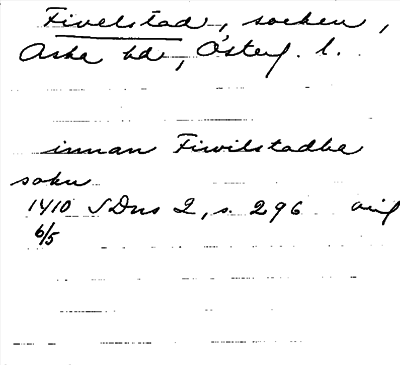 Fivelstad, socken,
Aska hd, Österg. l.
innan Fiwilstadha
sokn
1410 SDns 2, s. 296 avs
6/5